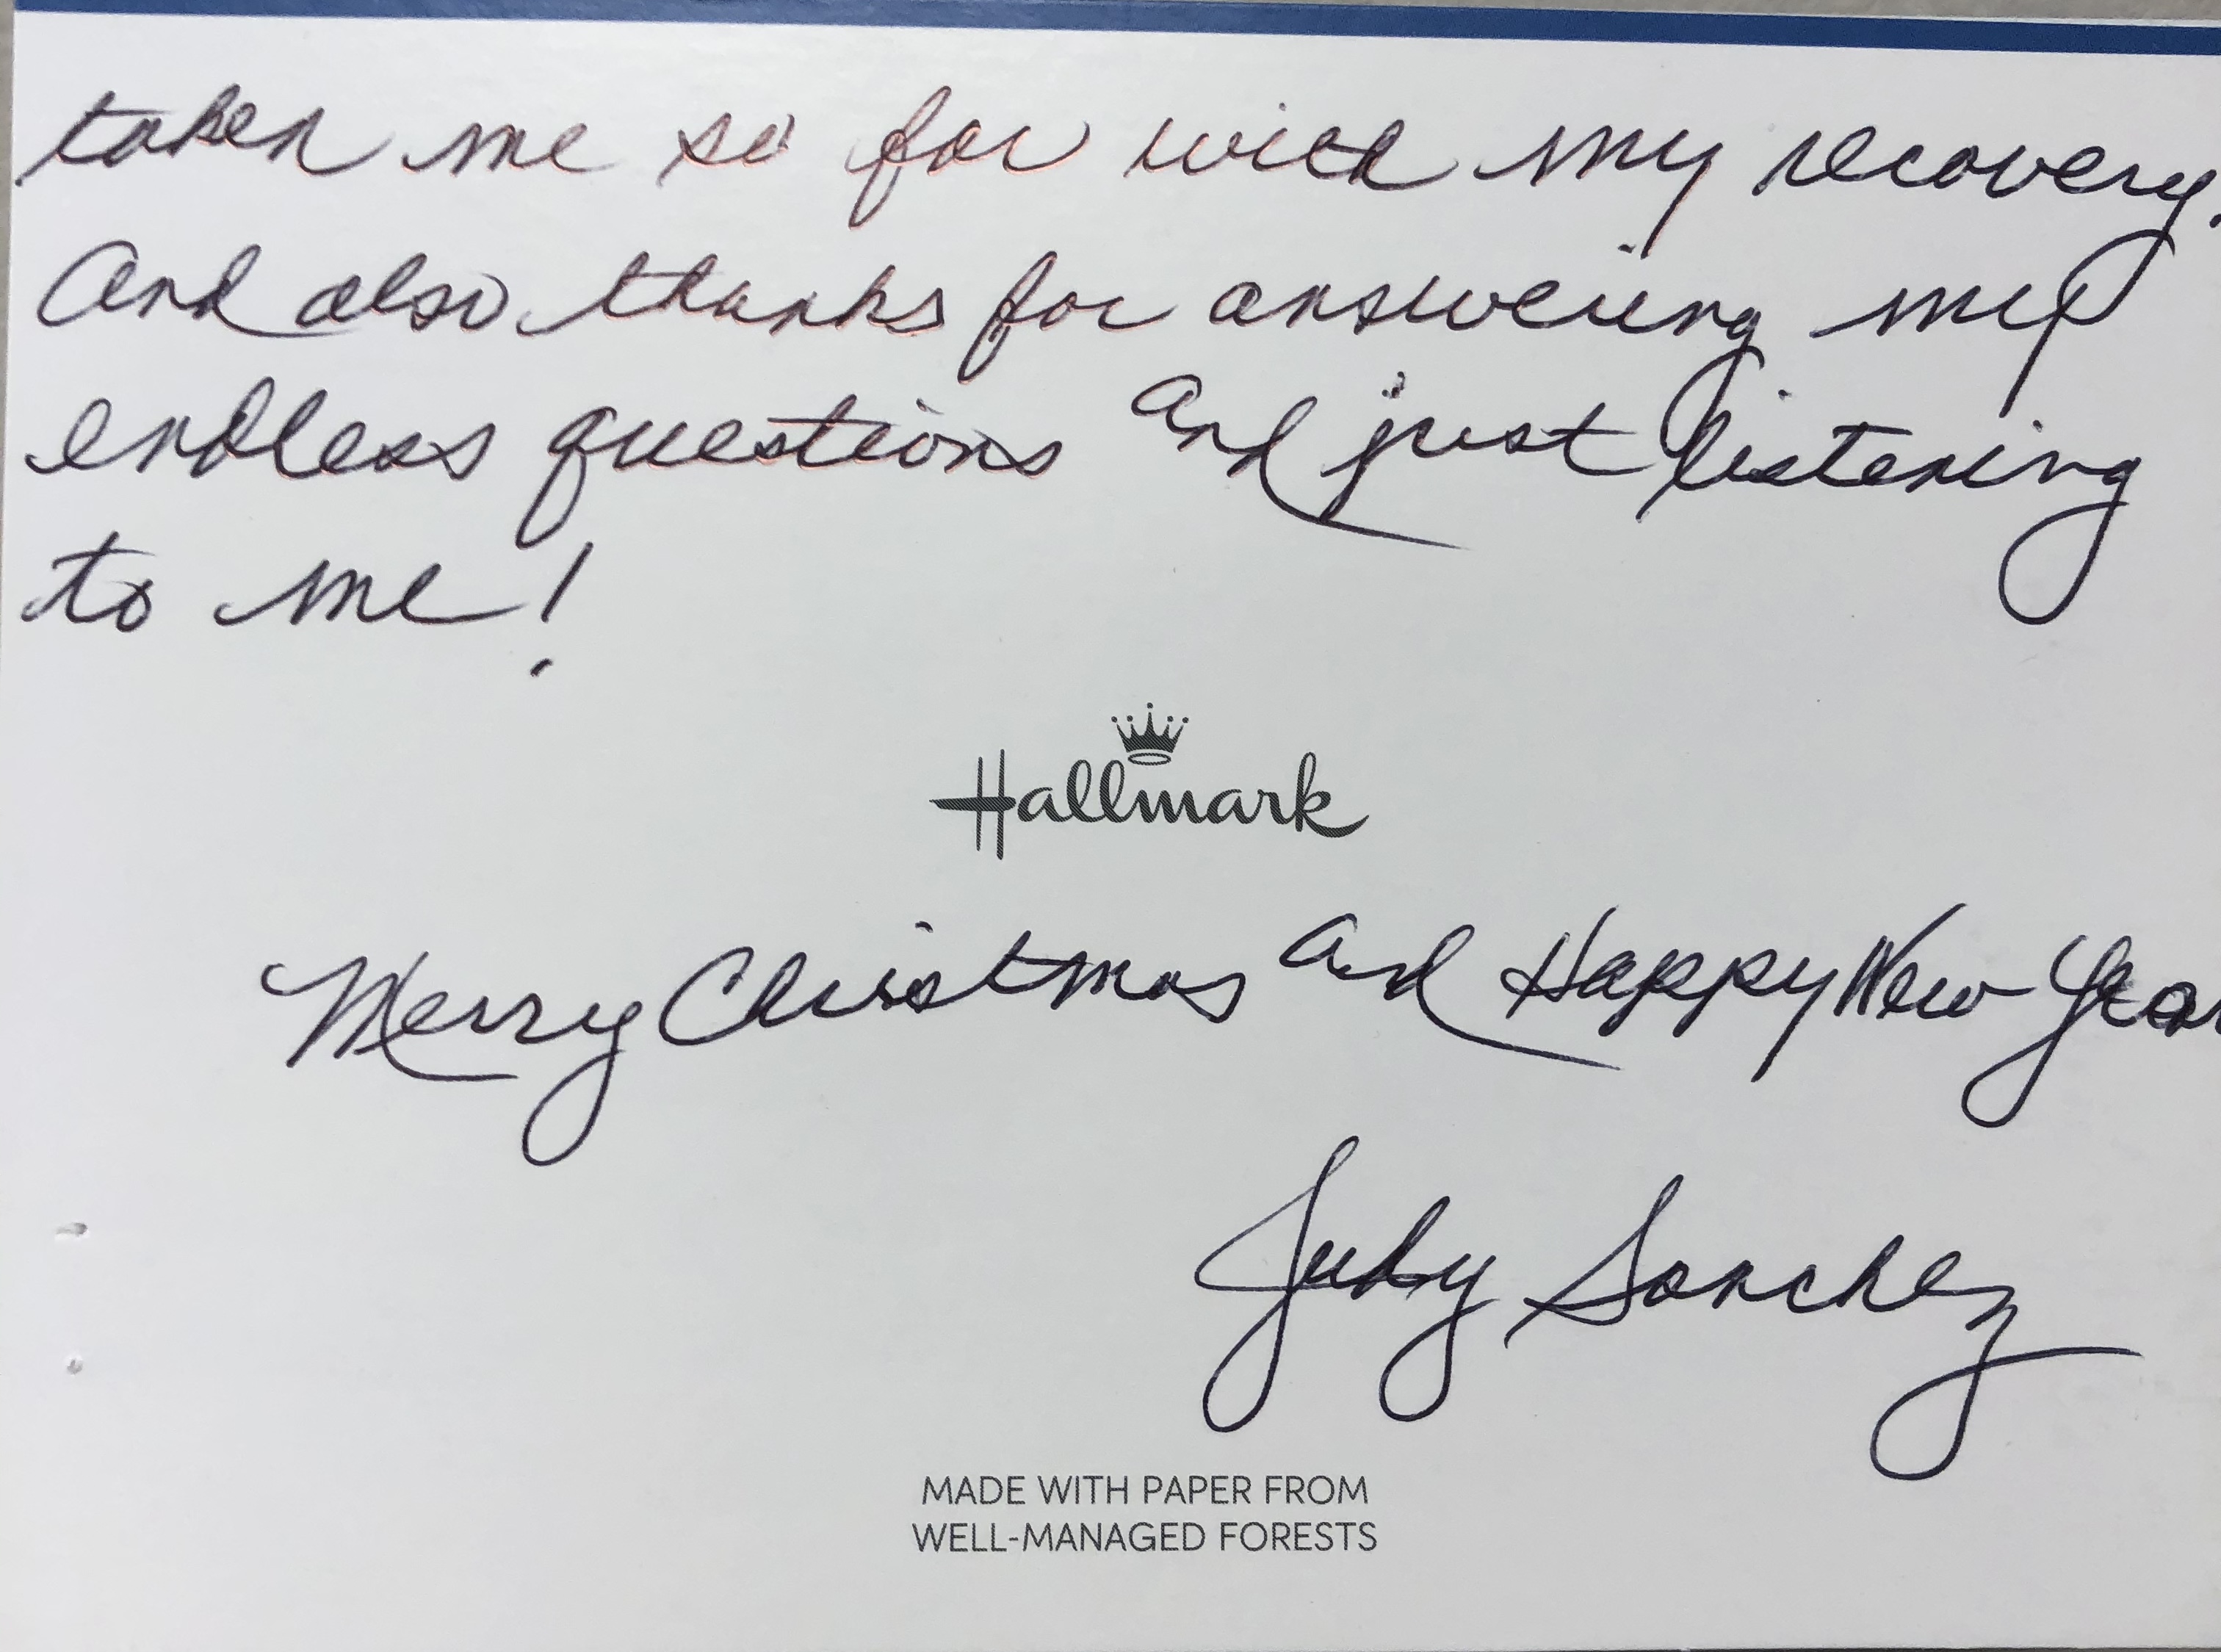 taken me so far with my recovery.
And also thanks for answering my
endless questions and just listening
to me!
Hallmark
Merry Christmas and Happy New Year
Judy Sanchez
MADE WITH PAPER FROM
WELL-MANAGED FORESTS